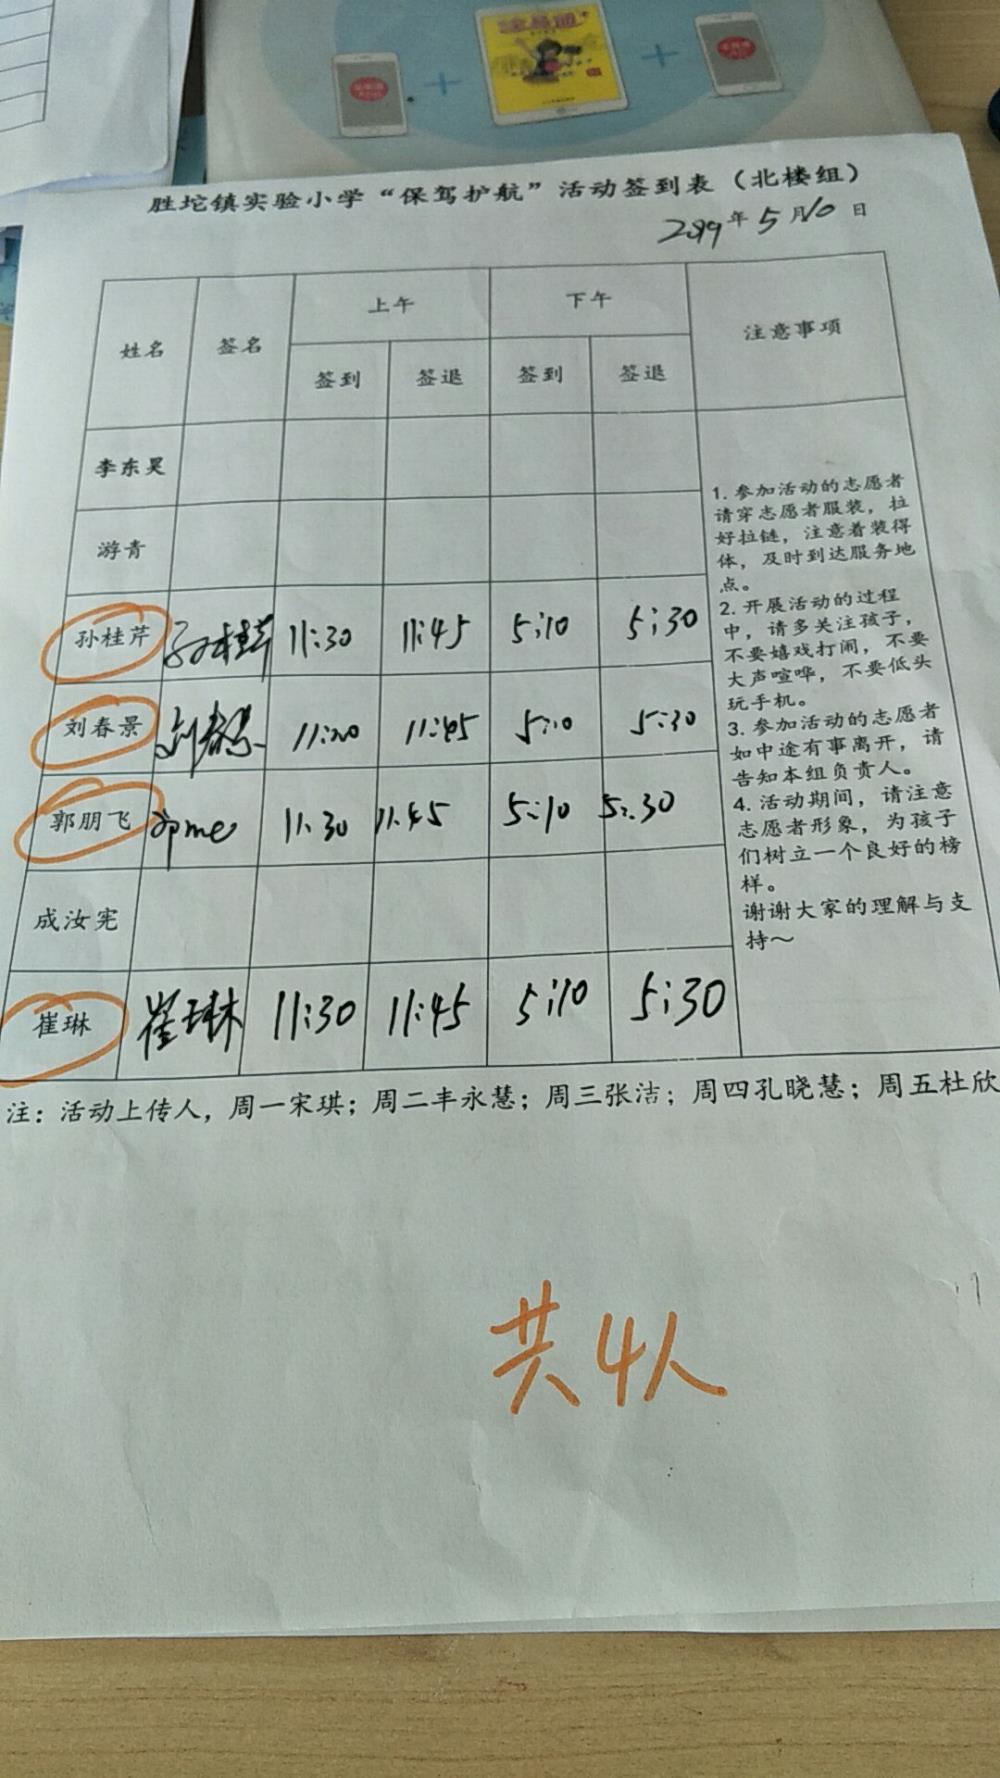 胜坨镇实验小学“保驾护航”活动签到表（北楼组）
2019年5月10日
姓名 签名 上午 下午 注意事项
签到 签退 签到 签退
李东昊
游青
孙桂芹 孙桂芹 11:30 11:45 5:10 5:30
刘春景 刘春景 11:30 11:45 5:10 5:30
郭朋飞 11:30 11:45 5:10 5:30
成汝宪
崔琳 崔琳 11:30 11:45 5:10 5:30
1. 参加活动的志愿者
请穿志愿者服装，拉
好拉链，注意着装得
体，及时到达服务地
点。
2. 开展活动的过程
中，请多关注孩子，
不要嬉戏打闹，不要
大声喧哗，不要低头
玩手机。
3. 参加活动的志愿者
如中途有事离开，请
告知本组负责人。
4. 活动期间，请注意
志愿者形象，为孩子
们树立一个良好的榜
样。
谢谢大家的理解与支
持～
注：活动上传人，周一宋琪；周二丰永慧；周三张洁；周四孔晓慧；周五杜欣
共4人